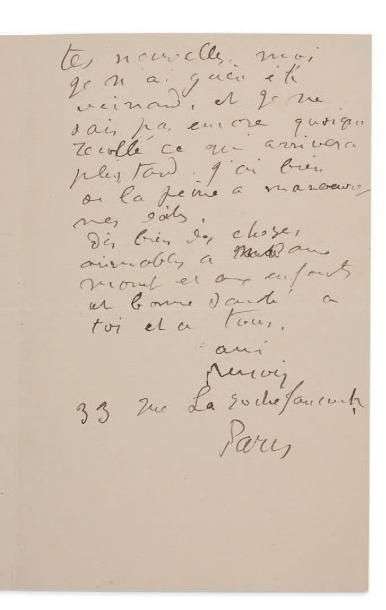 tes nouvelles. moi
je n'ai guère été
veinard. et je ne
sais pas encore quoique
recollé ce qui arrivera
plus tard. j'ai bien
de la peine a manoeuvrer
mes
Dis bien des choses
aimables à madame
monet et aux enfants
et bonne santé a
toi et a tous.
ami
Renoir
33 rue La Rochefoucault
Paris